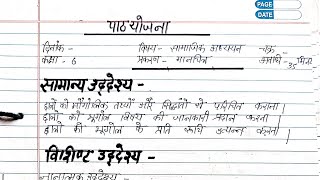 PAGE
DATE
पाठयोजना
दिनांक - विषय - सामाजिक अध्ययन चक्र -
कक्षा - 6 प्रकरण - मानचित्र अवधि - 35 मिनट
सामान्य उद्देश्य -
छात्रों को भौगोलिक तथ्यों और सिद्धांतों से परिचित कराना।
छात्रों को भूगोल विषय की जानकारी प्रदान करना।
छात्रों को भूगोल के प्रति रूचि उत्पन्न करना।
विशिष्ट उद्देश्य -
ज्ञानात्मक उद्देश्य -